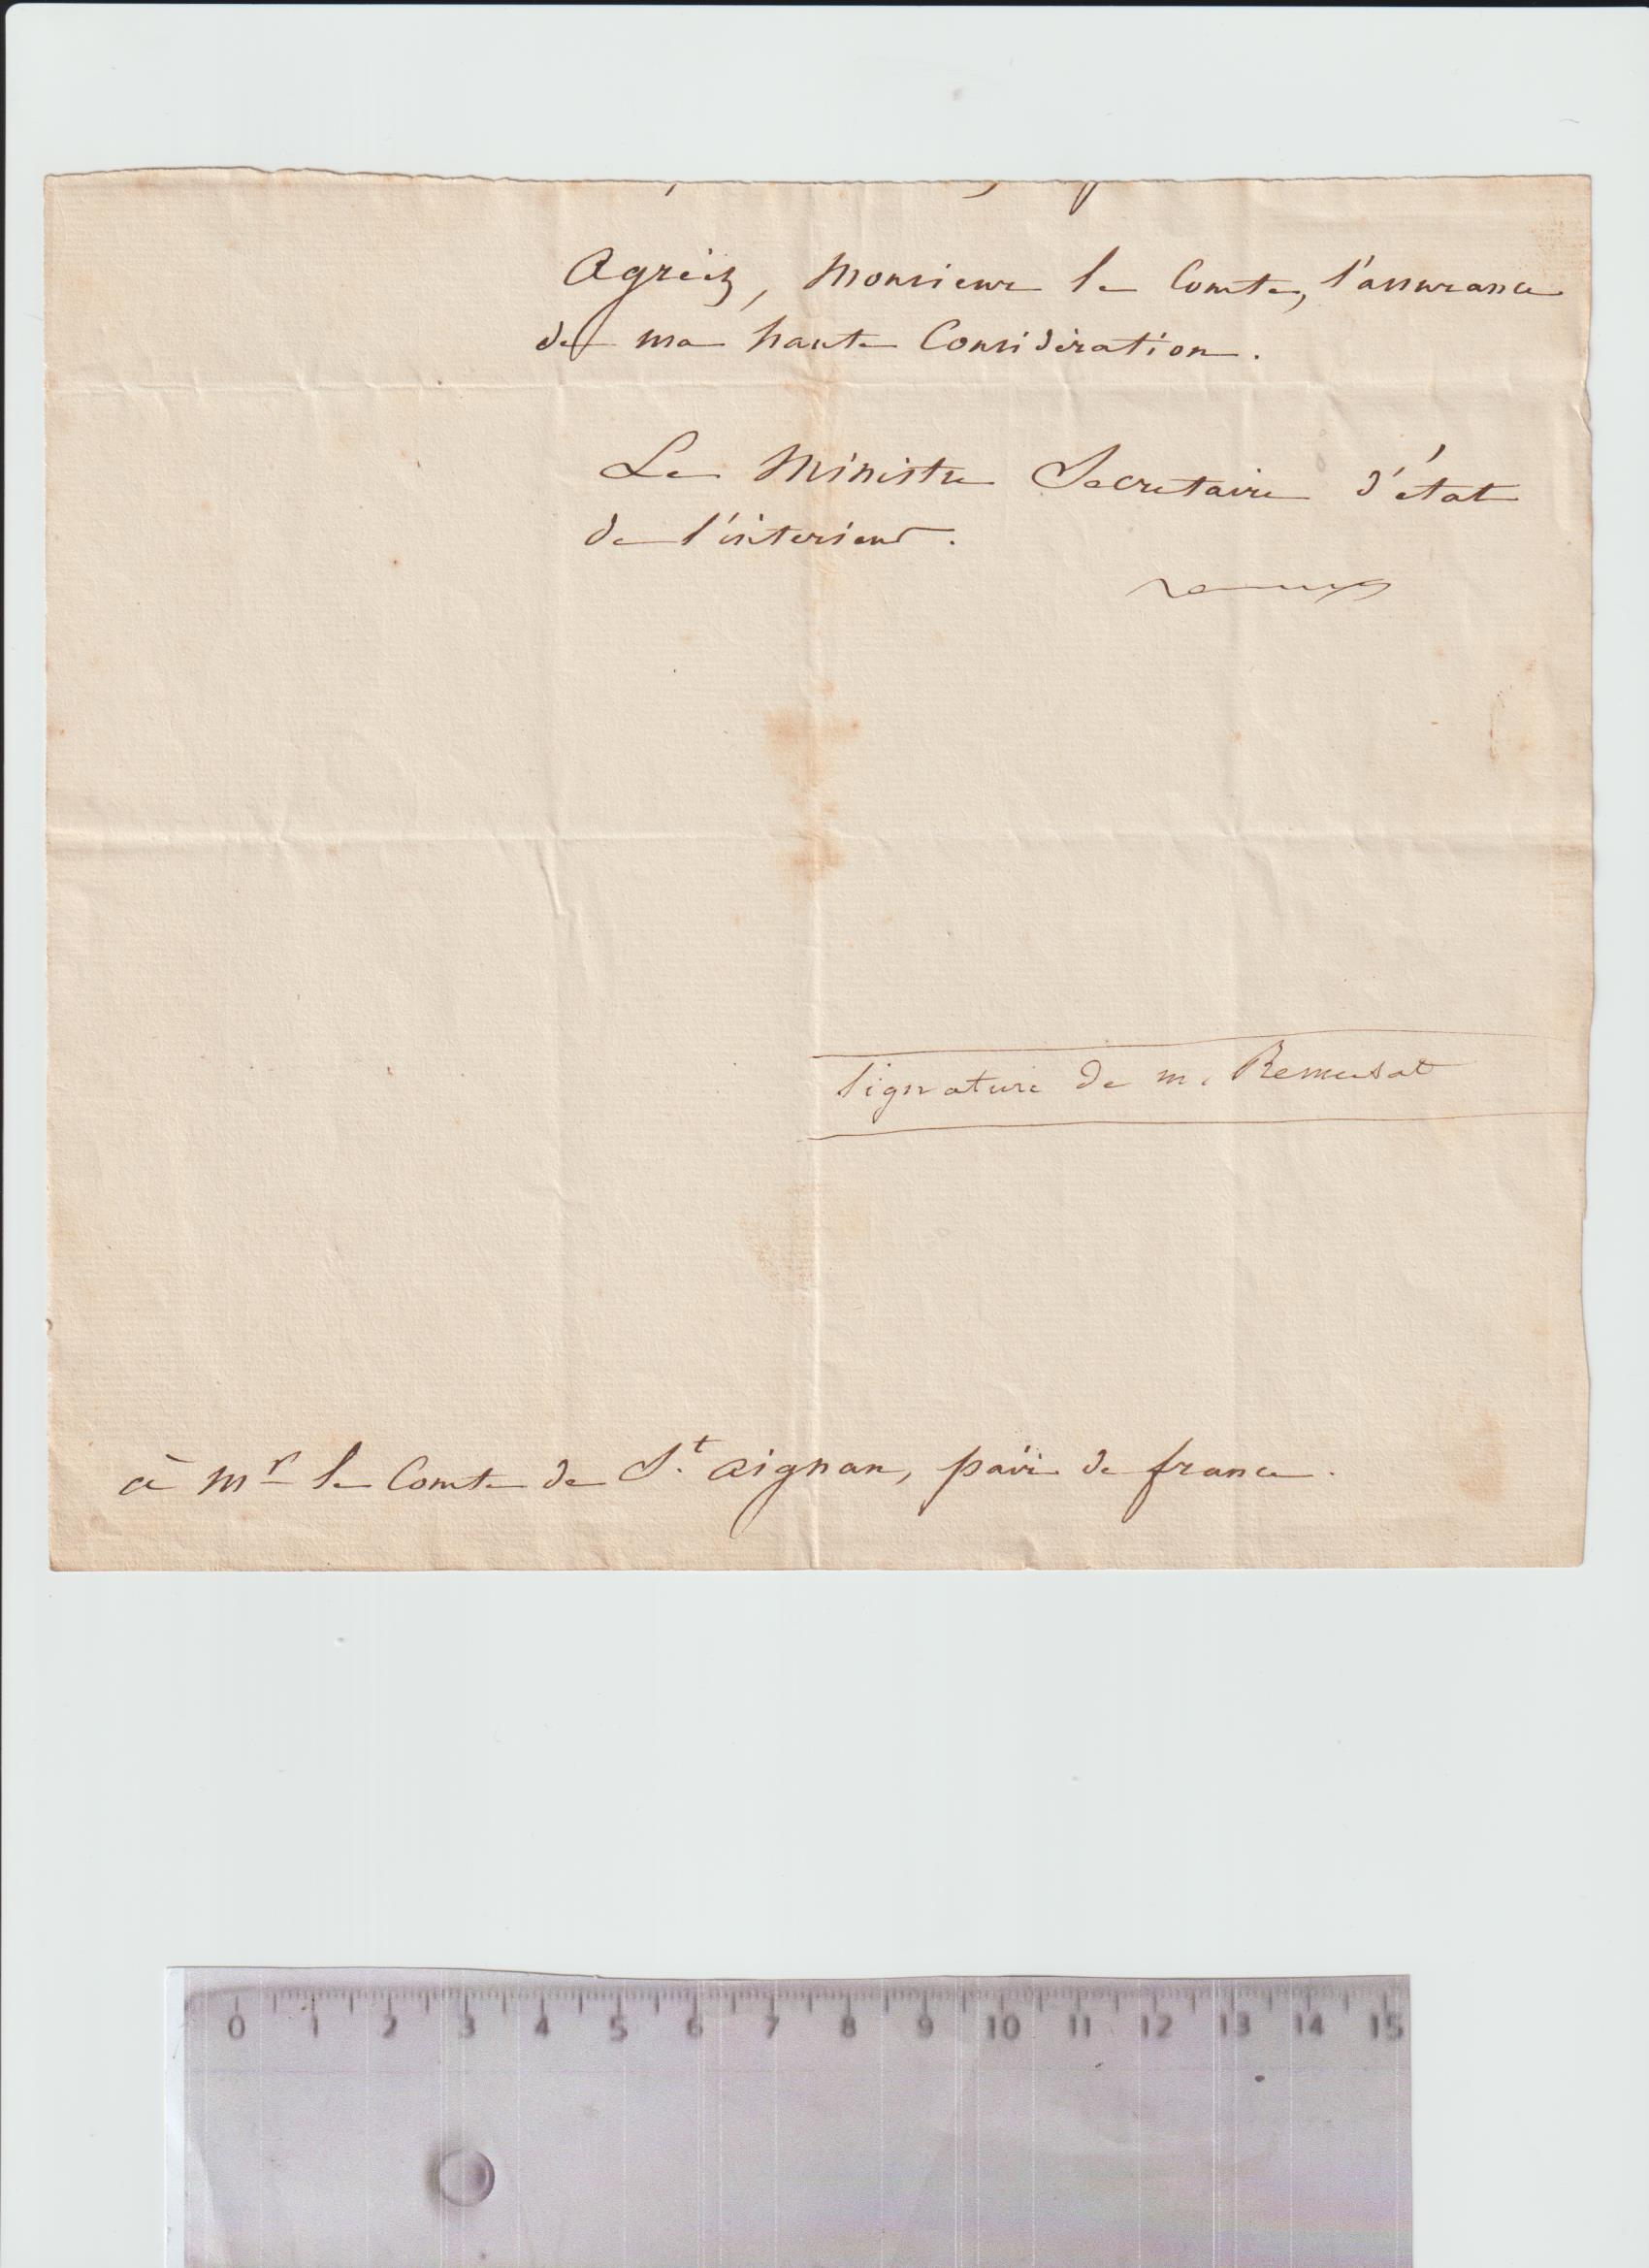 Agréez, Monsieur le Comte, l'assurance
de ma haute Considération.
Le Ministre Secretaire d'état
de l'interieur.
Signature de m. Remusat
à Mr le Comte de St. aignan, pair de france.
0 1 2 3 4 5 6 7 8 9 10 11 12 13 14 15